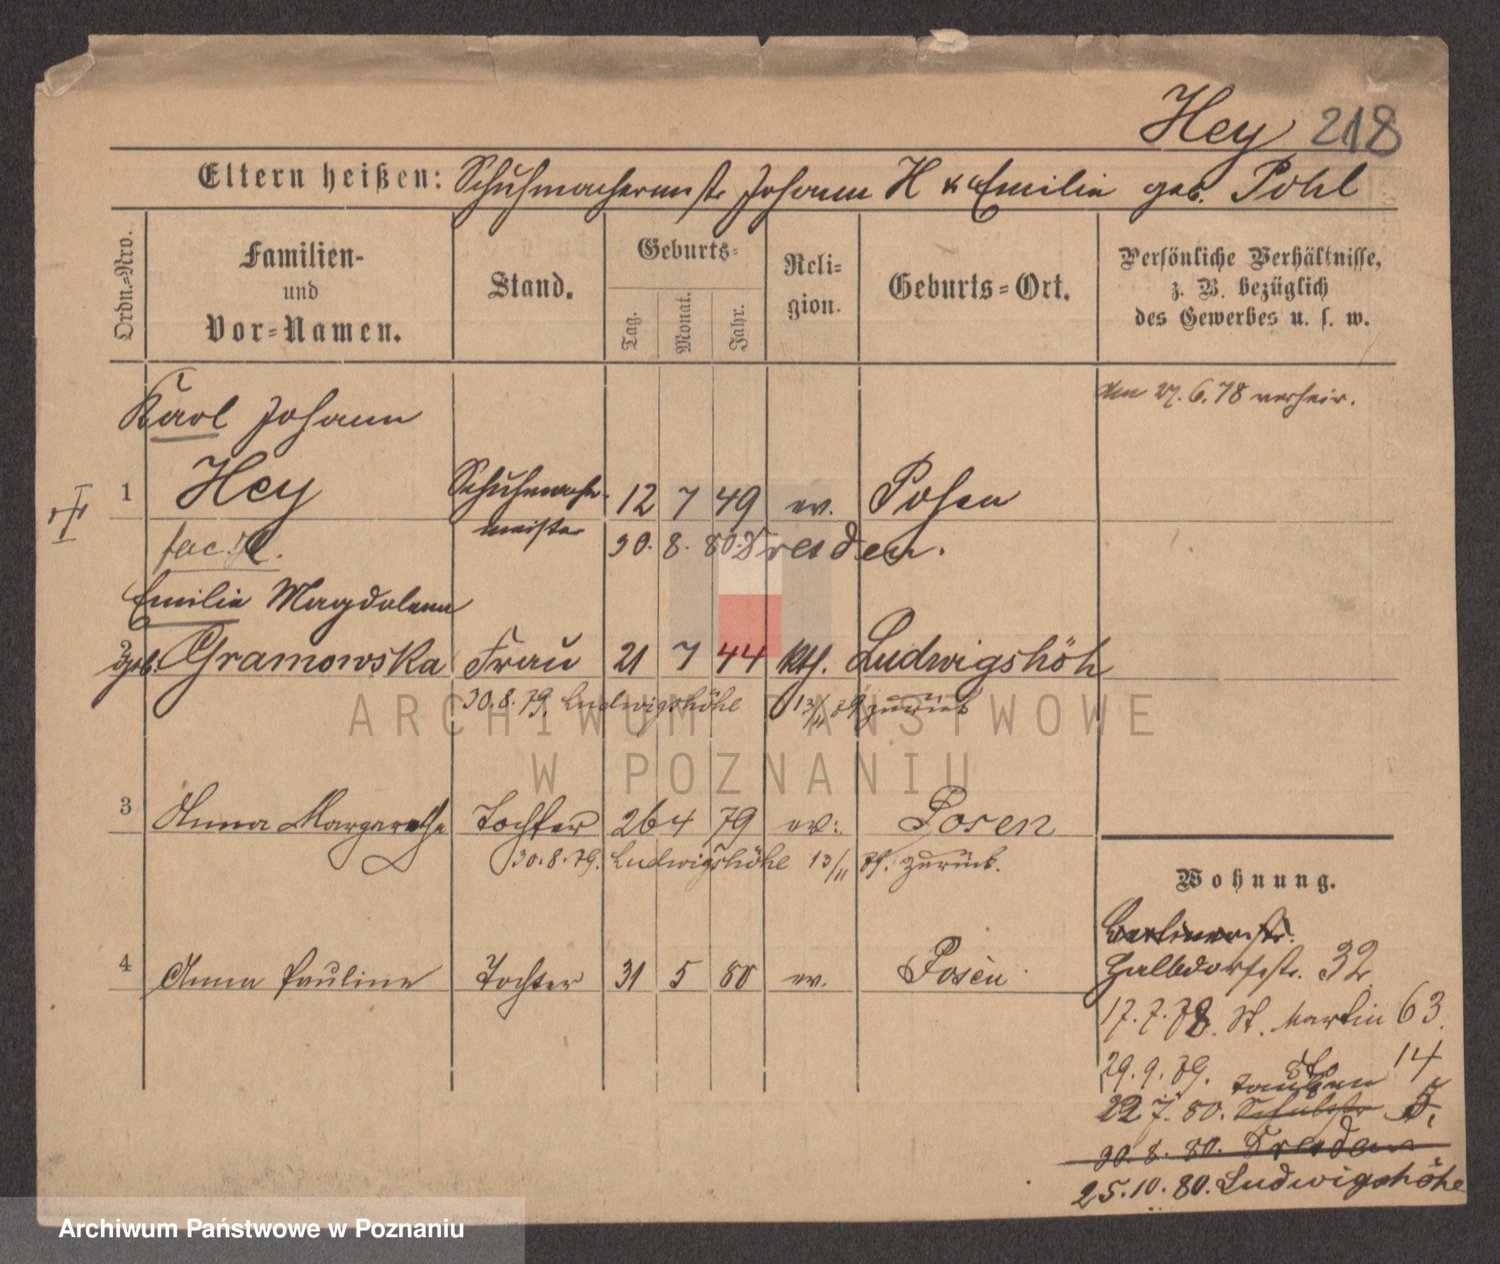 Hey 218
Eltern heißen: Schuhmachermstr Johann H u. Emilie geb. Pohl
Ordn.=Nro.
Familien-
und
Vor=Namen.
Stand.
Geburts=
Tag.
Monat.
Jahr.
Reli=
gion.
Geburts=Ort.
Persönliche Verhältnisse,
z. B. bezüglich
des Gewerbes u. s. w.
Karl Johann
am 27. 6. 78 verheir.
1 Hey Schuhmacher- 12 7 49 ev. Posen
meister
30. 8. 80. Dresden.
Emilie Magdalena
2 geb. Gramowska Frau 21 7 44 kth. Ludwigshöh
30. 8. 79. Ludwigshöhe 13/11 79 zurück
3 Anna Margarethe Tochter 26 4 79 ev. Posen
30. 8. 79. Ludwigshöhe 13/11 79. zurück.
Wohnung.
Berlinerstr.
4 Anna Pauline Tochter 31 5 80 ev. Posen
Halbdorfstr. 32
17. 7. 78. St. Martin 63.
29. 9. 79. dto 14
Tauben
22 7. 80. Schulstr 5.
30. 8. 80. Dresden
25. 10. 80. Ludwigshöhe
ARCHIWUM PAŃSTWOWE
W POZNANIU
Archiwum Państwowe w Poznaniu